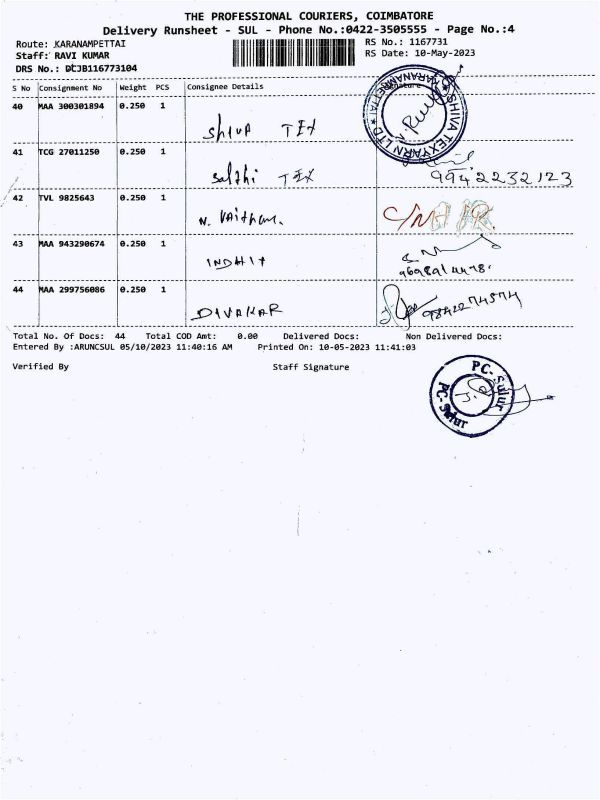 THE PROFESSIONAL COURIERS, COIMBATORE
Delivery Runsheet - SUL - Phone No.:0422-3505555 - Page No.:4
Route: KARANAMPETTAI
RS No.: 1167731
Staff: RAVI KUMAR
RS Date: 10-May-2023
DRS No.: DCJB116773104
S No Consignment No Weight PCS Consignee Details Signature
40 MAA 300301894 0.250 1
Shiva TEX
SHIVA TEXYARN LTD
KARANAMPETTAI
41 TCG 27011250 0.250 1
Sakthi TEX
9942232123
42 TVL 9825643 0.250 1
N.
43 MAA 943290674 0.250 1
INDHIT
44 MAA 299756086 0.250 1
DIVAKAR
9842274574
Total No. Of Docs: 44 Total COD Amt: 0.00 Delivered Docs: Non Delivered Docs:
Entered By :ARUNCSUL 05/10/2023 11:40:16 AM Printed On: 10-05-2023 11:41:03
Verified By Staff Signature
PC-Sulur
PC-Sulur